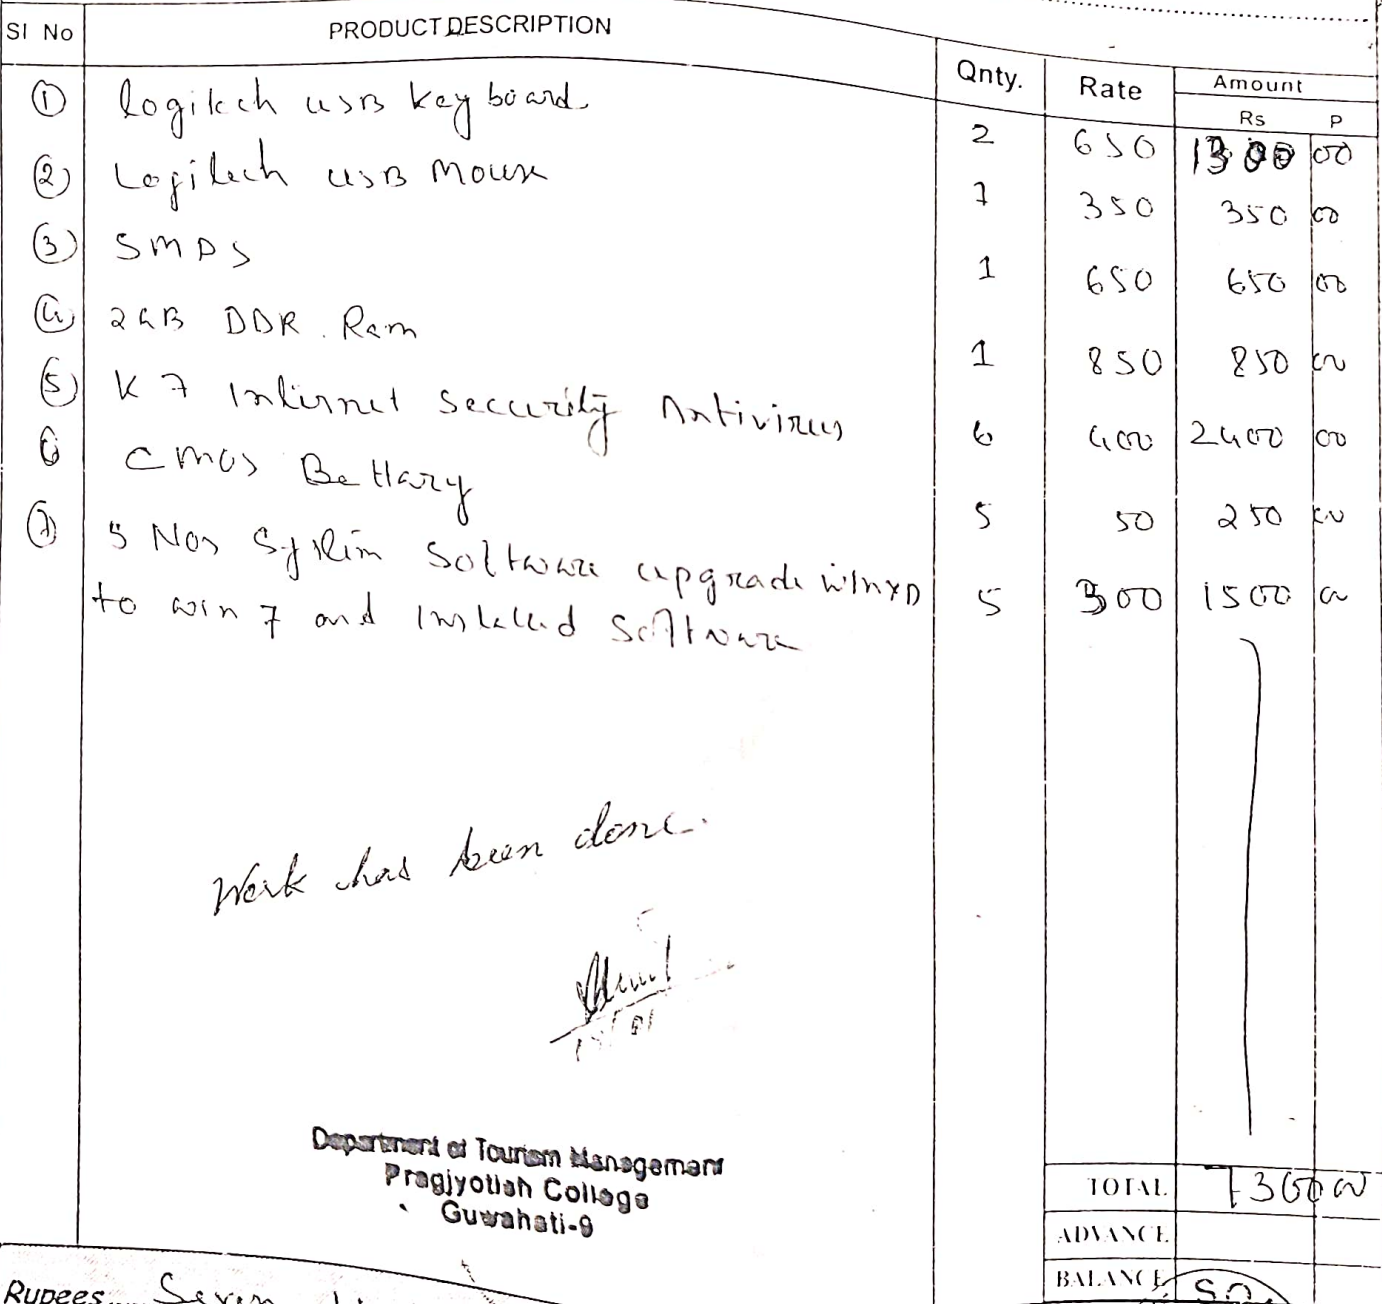 Sl No PRODUCT DESCRIPTION Qnty. Rate Amount
Rs P
1 Logitech USB Key board 2 650 1300 00
2 Logitech USB Mouse 1 350 350 00
3 SMPS 1 650 650 00
4 2GB DDR Ram 1 850 850 00
5 K7 Internet Security Antivirus 6 400 2400 00
6 CMOS Battary 5 50 250 00
7 5 Nos System Software upgrade winXP
to win 7 and Installed Software 5 300 1500 00
Work has been done.
Department of Tourism Management
Pragjyotish College
Guwahati-9
TOTAL 7300 00
ADVANCE
BALANCE
Rupees Seven